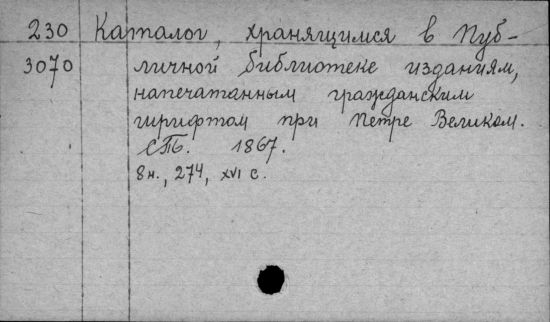 230 Каталог, хранящимся в Пуб-
3070 личной библиотеке изданиям,
напечатанным гражданским
шрифтом при Петре Великом.
СПб. 1867.
8н., 274, XVI с.